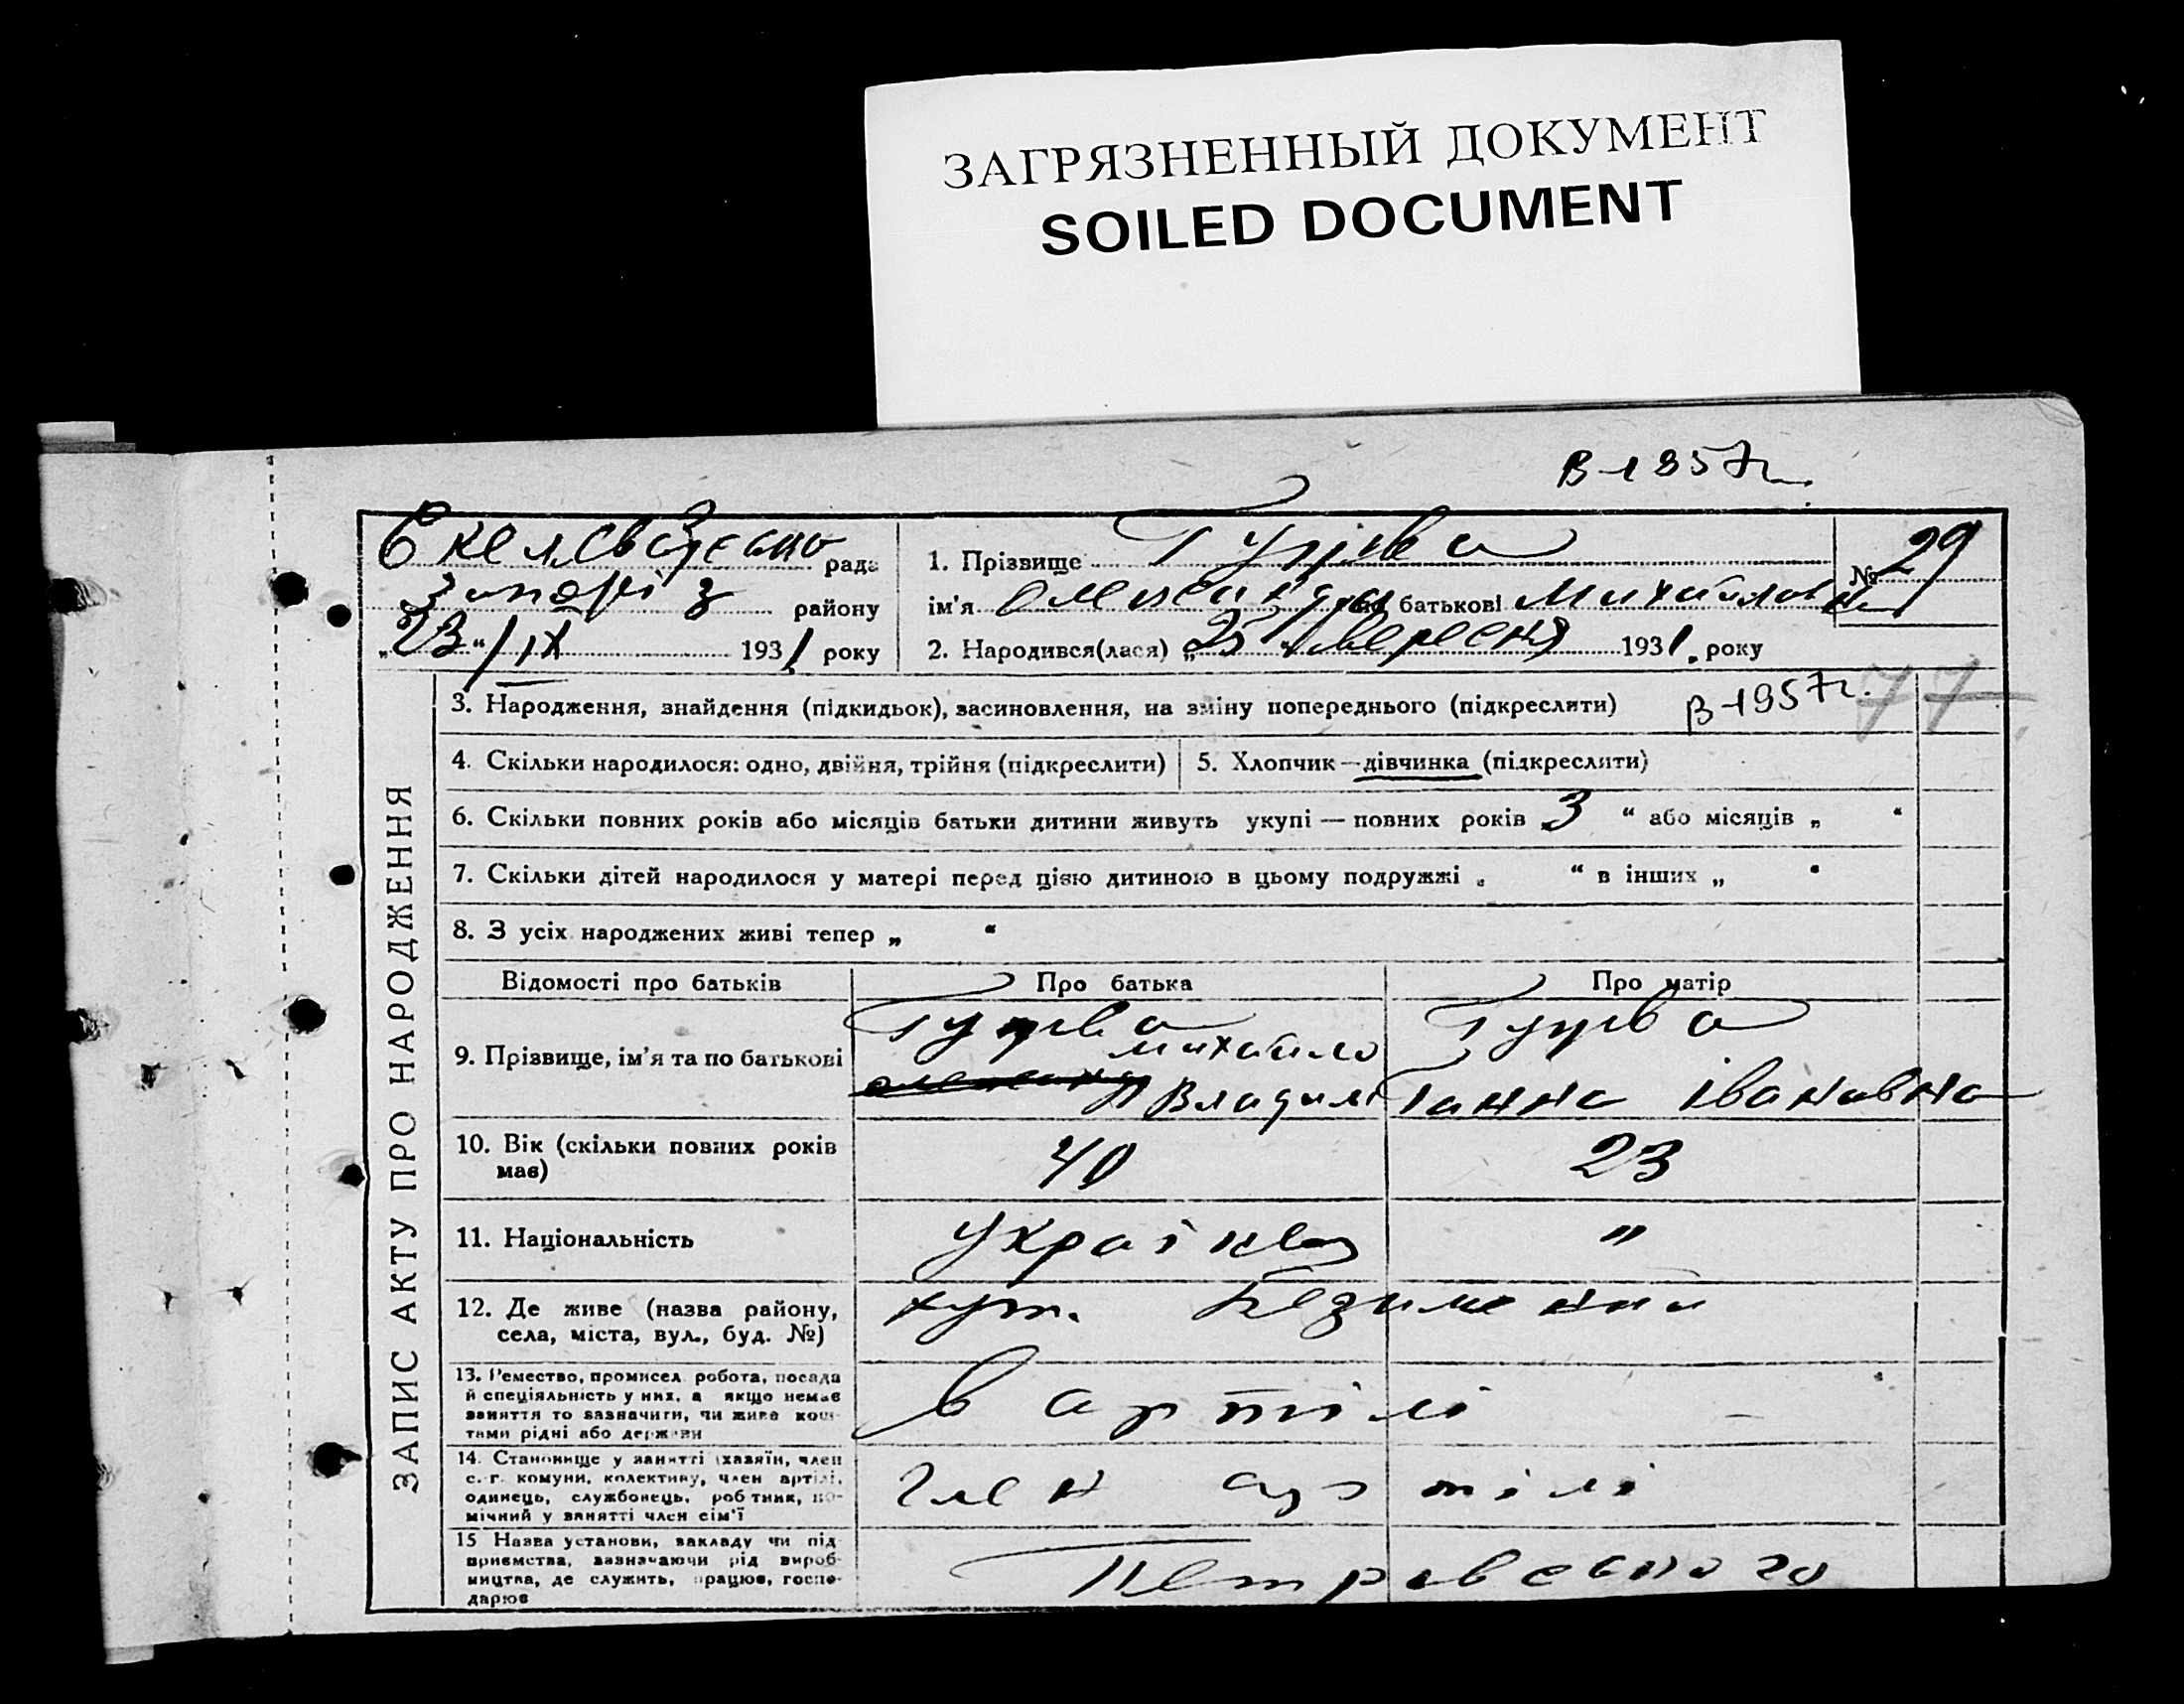 ЗАГРЯЗНЕННЫЙ ДОКУМЕНТ
SOILED DOCUMENT
В-1957г.
рада
Запоріз району
„23“/IX 1931 року
1. Прізвище
ім'я Олександра по батькові Михайловна
2. Народився(лася) „25“ вересня 1931 року
№ 29
ЗАПИС АКТУ ПРО НАРОДЖЕННЯ
3. Народження, знайдення (підкидьок), засиновлення, на зміну попереднього (підкреслити) В-1957г. 77
4. Скільки народилося: одно, двійня, трійня (підкреслити)
5. Хлопчик—дівчинка (підкреслити)
6. Скільки повних років або місяців батьки дитини живуть укупі — повних років „3“ або місяців „ “
7. Скільки дітей народилося у матері перед цією дитиною в цьому подружжі „ “ в інших „ “
8. З усіх народжених живі тепер „ “
Відомості про батьків
Про батька
Про матір
9. Прізвище, ім'я та по батькові
Михайло
Владим
Ганна Івановна
10. Вік (скільки повних років має)
40
23
11. Національність
україн
"
12. Де живе (назва району, села, міста, вул., буд. №)
хут. Безименни
13. Ремество, промисел, робота, посада
й спеціяльність у них, а якщо немає
заняття то зазначити, чи живе кош-
тами рідні або держави
в артілі
–
14. Становище у занятті (хазяїн, член
с.-г. комуни, колективу, член артілі,
одинець, службовець, робітник, по-
мічний у занятті член сім'ї
член артілі
15 Назва установи, закладу чи під-
приємства, зазначаючи рід вироб-
ництва, де служить, працює, госпо-
дарює
Петровського